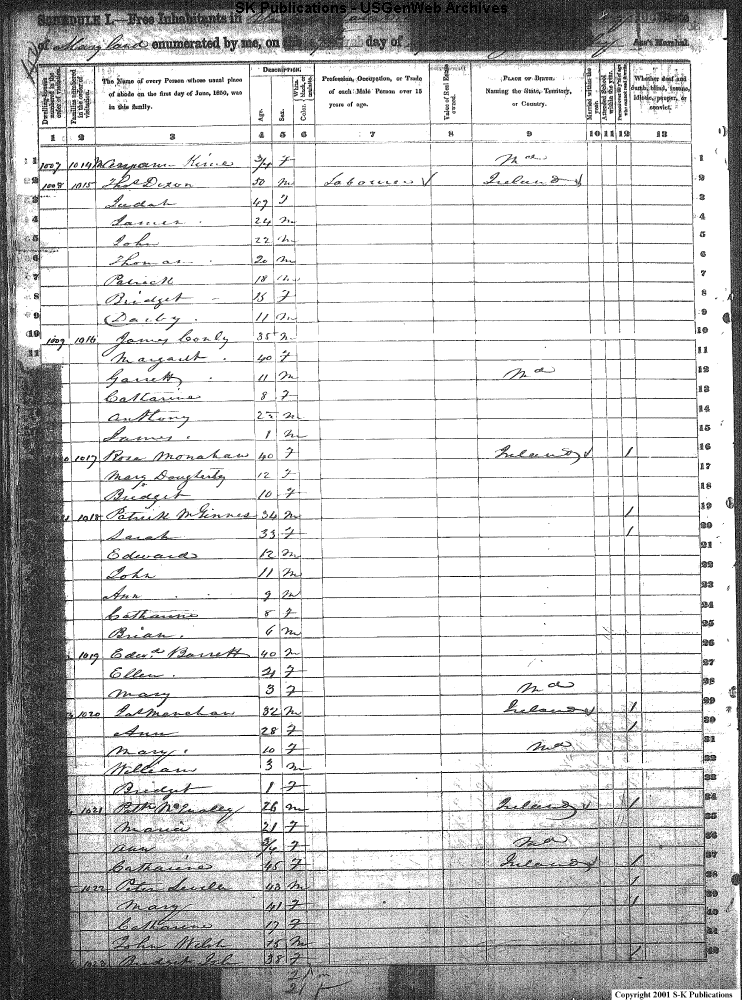 SK Publications - USGenWeb Archives
SCHEDULE I.—Free Inhabitants in
of Maryland enumerated by me, on the day of Ass't Marshal.
Dwelling-houses numbered in the order of visitation.
Families numbered in the order of visitation.
The Name of every Person whose usual place of abode on the first day of June, 1850, was in this family.
DESCRIPTION.
Age.
Sex.
Color, White, black, or mulatto.
Profession, Occupation, or Trade of each Male Person over 15 years of age.
Value of Real Estate owned.
PLACE OF BIRTH. Naming the State, Territory, or Country.
Married within the year.
Attended School within the year.
Whether deaf and dumb, blind, insane, idiotic, pauper, or convict.
1 2 3 4 5 6 7 8 9 10 11 12 13
1 1007 1014 Kine 3/4 F Md 1
2 1008 1015 Thos Dixon 50 M Laborer Ireland 2
3 Judah 47 F 3
4 James 24 M 4
5 John 22 M 5
6 Thomas 20 M 6
7 Patrick 18 M 7
8 Bridget 15 F 8
9 Darby 11 M 9
10 1009 1016 James Conly 35 M 10
11 Margaret 40 F 11
Garrett 11 M Md 12
Catharine 8 F 13
Anthony 23 M 14
James 1 M 15
1017 Rose Monahan 40 F Ireland 1 16
Mary Dougherty 12 F 17
Bridget 10 F 18
1018 Patrick McGinnes 34 M 1 19
Sarah 33 F 1 20
Edward 12 M 21
John 11 M 22
Ann 9 M 23
Catharine 8 F 24
Brian 6 M 25
1019 Edwd Barrett 40 M 26
Ellen F 27
Mary 3 F Md 28
1020 32 M Ireland 1 29
Ann 28 F 1 30
Mary 10 F Md 31
William 3 M 32
Bridget 1 F 33
1021 Patk 26 M Ireland 1 34
Maria 21 F 35
Ann F Md 36
Catharine 45 F Ireland 1 37
1022 Peter 43 M 1 38
Mary 41 F 1 39
Catharine 17 F 40
John Welsh 15 M 41
Bridget 38 F 1 42
Copyright 2001 S-K Publications